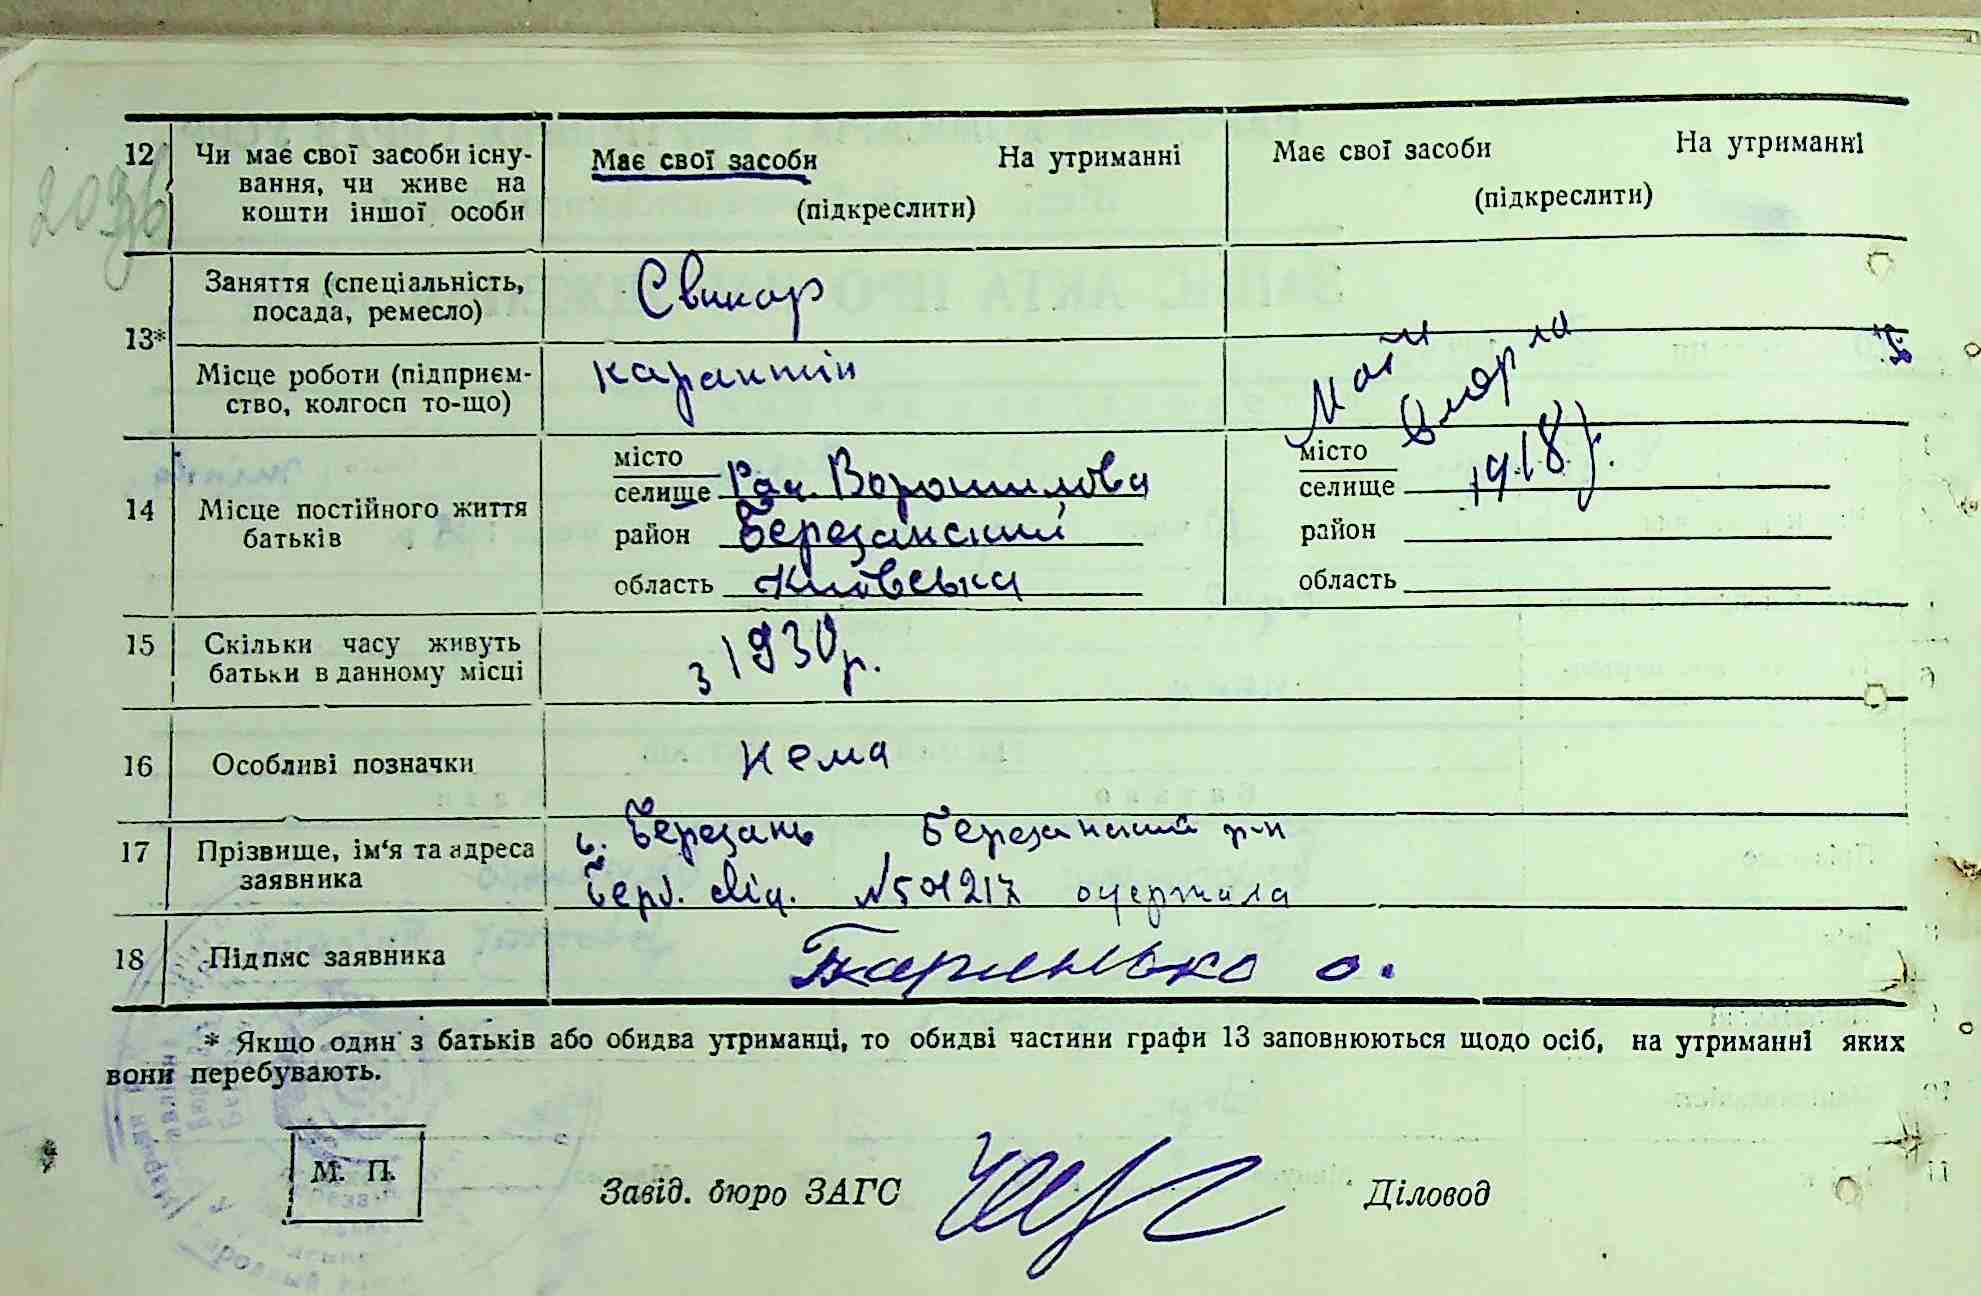 12 Чи має свої засоби існу- Має свої засоби На утриманні Має свої засоби На утриманні
вання, чи живе на
кошти іншої особи (підкреслити) (підкреслити)
Заняття (спеціальність, Свинар
посада, ремесло)
13*
Місце роботи (підприєм- карантін
ство, колгосп то-що)
1918 р.
місто місто
селище Рад. Ворошилова селище
14 Місце постійного життя район Березанский район
батьків
область Київська область
15 Скільки часу живуть з 1930 р.
батьки в данному місці
16 Особливі позначки нема
с. Березань Березанский р-н
17 Прізвище, ім'я та адреса
заявника одержала
18 Підпис заявника о.
* Якщо один з батьків або обидва утриманці, то обидві частини графи 13 заповнюються щодо осіб, на утриманні яких
вони перебувають.
М. П.
Завід. бюро ЗАГС Діловод